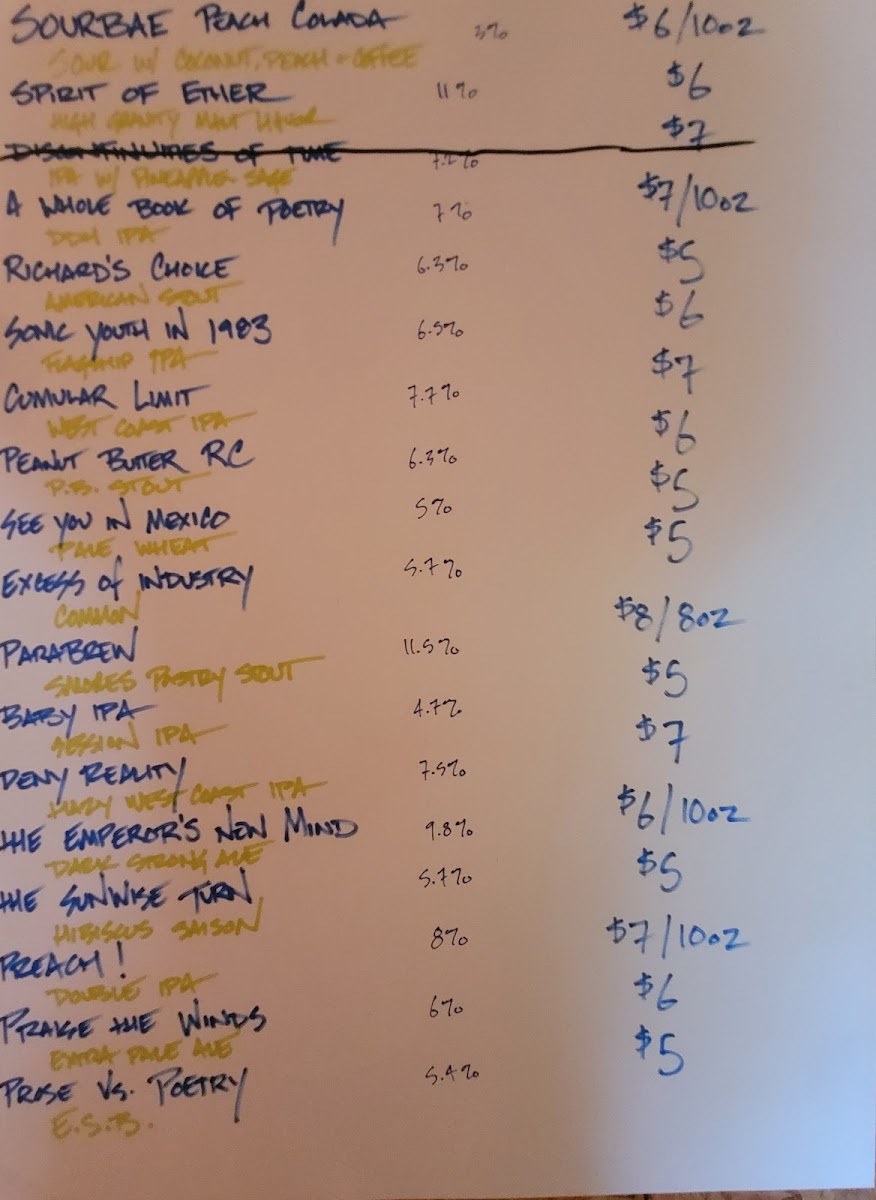 SOURBAE PEACH COLADA 3% $6/10oz
SOUR W/ COCONUT, PEACH + COFFEE
SPIRIT OF ETHER 11% $6
HIGH GRAVITY MALT LIQUOR
DISCONTINUITIES OF TIME 7.2% $7
IPA W/ PINEAPPLE SAGE
A WHOLE BOOK OF POETRY 7% $7/10oz
DDH IPA
RICHARD'S CHOICE 6.3% $5
AMERICAN STOUT
SONIC YOUTH IN 1983 6.5% $6
FLAGSHIP IPA
CUMULAR LIMIT 7.7% $7
WEST COAST IPA
PEANUT BUTTER RC 6.3% $6
P.B. STOUT
SEE YOU IN MEXICO 5% $5
PALE WHEAT
EXCESS of INDUSTRY 5.7% $5
COMMON
PARABREW 11.5% $8/8oz
SMORES PASTRY STOUT
BABY IPA 4.7% $5
SESSION IPA
DENY REALITY 7.5% $7
HAZY WEST COAST IPA
THE EMPEROR'S NEW MIND 9.8% $6/10oz
DARK STRONG ALE
THE SUNWISE TURN 5.7% $5
HIBISCUS SAISON
PREACH! 8% $7/10oz
DOUBLE IPA
PRAISE THE WINDS 6% $6
EXTRA PALE ALE
PROSE VS. POETRY 5.4% $5
E.S.B.